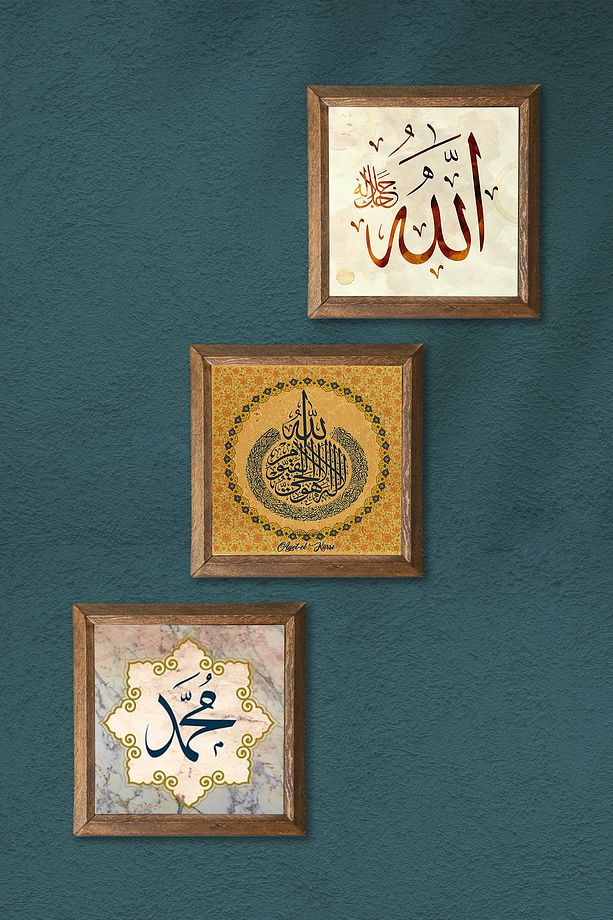 الله
جل جلاله
الله لا إله إلا هو الحي القيوم
Ayet-el Kürsi
محمد